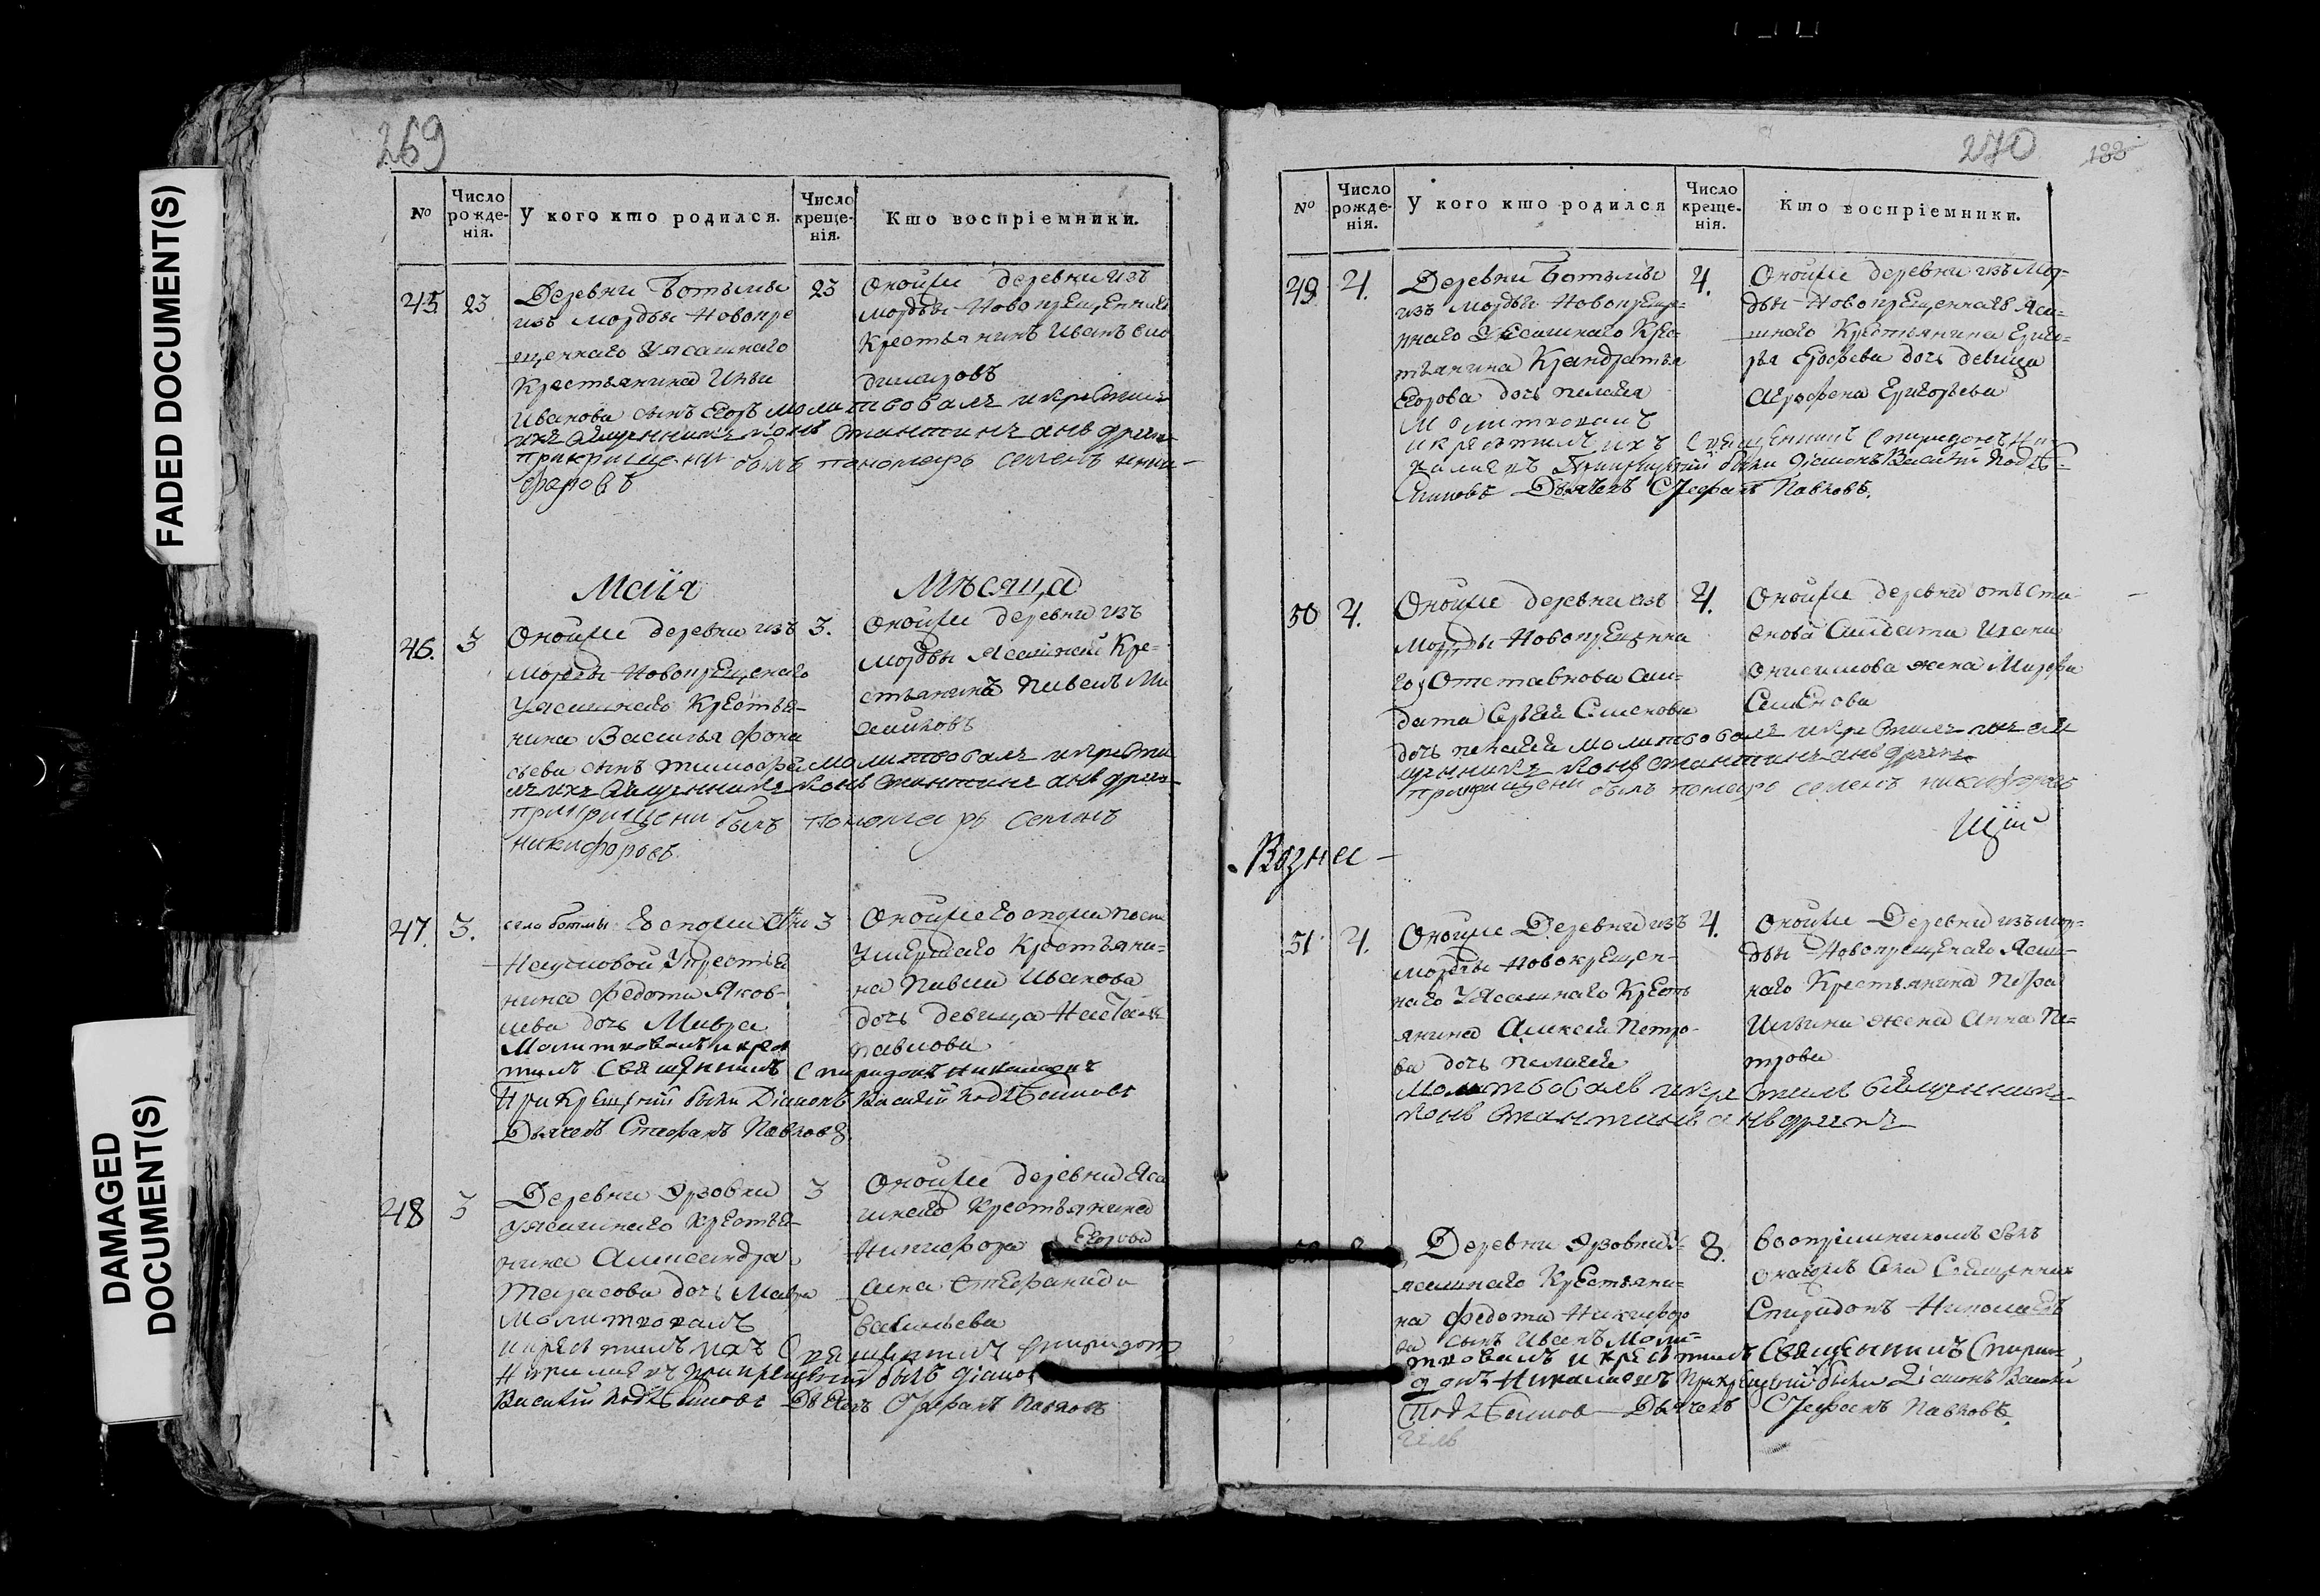 FADED DOCUMENT(S)
DAMAGED
DOCUMENT(S)
269
№
Число рожде-нія.
У кого кто родился.
Число креще-нія.
Кто воспріемники.
45
23
Деревни Ботьмы
изъ мордвы Новокре
щеннаго Уясашнаго
Крестьянина Ильи
Иванова сынъ Егоръ молитвовалъ икрестилъ
ихъ священникъ константинъ андреевъ
прикрещени былъ пономарь семенъ ники-
форовъ
23
Оноиже деревни изъ
мордвы Новокрещенной
Крестьянинъ Иванъ
Маiя Мѣсяца
46.
3
Оноиже деревни изъ
мордвы Новокрещенаго
Уясашнаго Крестья-
нина Василья Афона
сьева сынъ тимофей молитвовалъ икрести
лъ ихъ священникъ константинъ андреевъ
прикрищени былъ пономарь семенъ
никифоровъ
3.
Оноиже деревни изъ
мордвы Ясашной Кре-
стьянинъ Павелъ
47.
3.
села ботмы Госпожи
Наумовой Укрестья
нина Федота Яков-
лева дочь Мавра
Молитвовалъ икрес
тилъ Священникъ Спиридонъ Николаевъ
При Крещенiй были Дiаконъ Василiй
Дьячекъ Стефанъ Павловъ
3
Оноиже Госпожи
Умершаго Крестьяни-
на Павла Иванова
дочь девица Настасья
павлова
48
3
Деревни Эрзовки
уясашнаго крестья-
нина Александра
Тарасова дочь Мавра
Молитвовалъ
икрестилъ ихъ Священникъ Спиридонъ
Николаевъ прикрещенiи былъ дiаконъ
Василiй Дьячекъ Стефанъ Павловъ
3
Оноиже деревни Яса
шнаго Крестьянина
Никифора Егорова
жена Стефанида
Васильева
270
188
№
Число рожде-нія.
У кого кто родился
Число креще-нія.
Кто воспріемники.
49
4.
Деревни Ботьмы
изъ мордвы Новокреще-
ннаго Уясашнаго Крес-
тьянина Кандратья
Егорова дочь пелагея
Молитвовалъ
икрестилъ ихъ Священникъ Спиридонъ Ни-
колаевъ Прикрещенiй были дiаконъ Василiй
Дьячекъ Стефанъ Павловъ.
4.
Оноиже деревни изъ Мор-
двы Новокрещеннаго Яса-
шнаго Крестьянина Григо-
рья Ерофеева дочь девица
Агрофена Григорьева
50
4.
Оноиже деревни изъ
Мордвы Новокрещенна
го у Отставнова сол-
дата Сергея Семенова
дочь пелагея молитвовалъ икрестилъ ихъ свя
щенникъ константинъ андреевъ
прикрищени былъ пономарь семенъ никифоровъ
4.
Оноиже деревни отъста
внова Салдата Ивана
Онисимова жена Марфа
Семенова
Вознес-
51
4.
Оноиже Деревни изъ
мордвы новокрещен-
наго Уясашнаго Кресть
янина Алексея Петро-
ва дочь пелагея
молитвовалъ икрестилъ священникъ
константинъ андреевъ
4.
Оноиже Деревни измор-
двы Новокрещенаго Ясаш-
наго Крестьянина Петра
Ильина жена Анна Пе-
трова
Деревни Эрзовки у
ясашнаго Крестьяни-
на Федота Никифоро
ва сынъ Иванъ Моли-
твовалъ и крестилъ Священникъ Спири-
донъ Николаевъ Прикрещенiй были Дiаконъ Василiй
Дьячекъ Стефанъ Павловъ.
8.
Воспрiемникомъ былъ
Священникъ
Спиридонъ Николаевъ